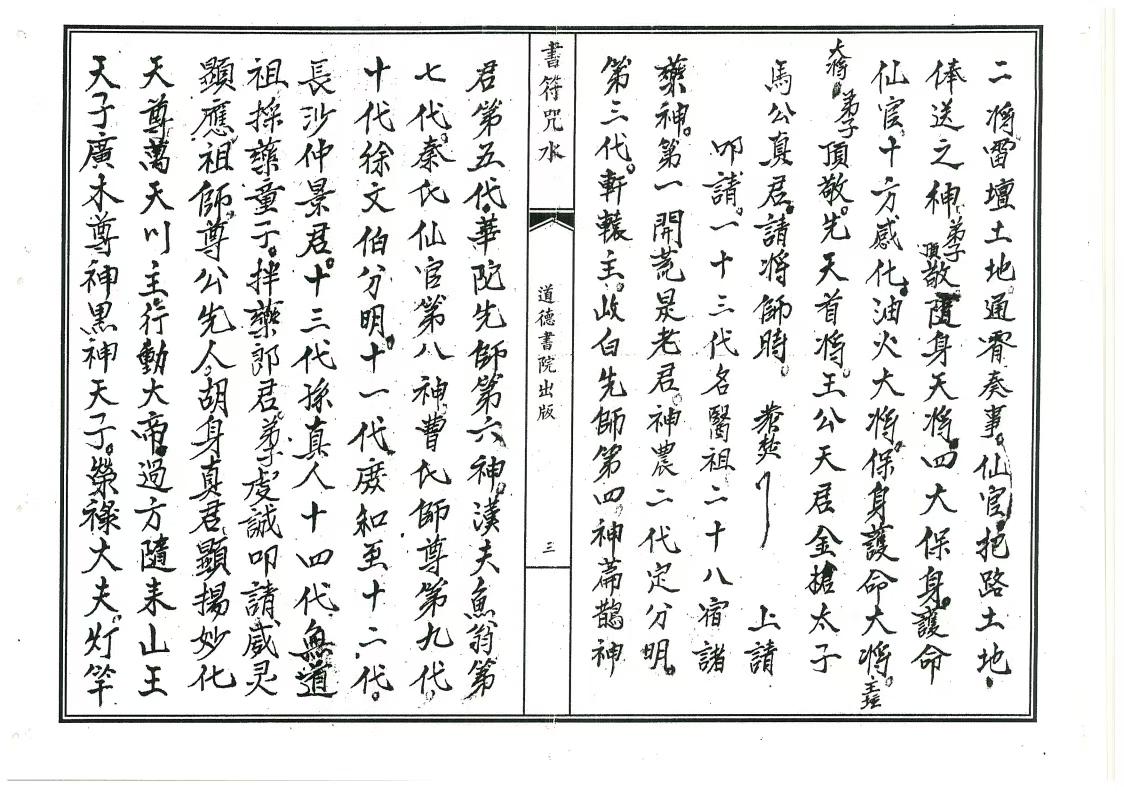 二將。雷壇土地。通霄奏事。仙官。把路土地。
俸送之神。弟子頂敬。隨身天將。四大保身。護命
仙官。十方感化。油火大將。保身護命大將。主壇
大將。弟子頂敬。先天首將。王公天君金槍太子
馬公真君。請將師時。 上請
叩請。一十三代名醫祖二十八宿諸
藥神。第一開荒是老君。神農二代定分明。
第三代。軒轅主。歧白先師第四神萹鵲神
書符咒水
道德書院出版
三
君第五代。華陀先師第六神。漢夫魚翁第
七代。秦氏仙官第八神。曹氏師尊第九代。
十代徐文伯分明。十一代。廣和至十二代。
長沙仲景君。十三代孫真人十四代。無道
祖採藥童子。拌藥郎君弟子虔誠叩請。威灵
顯應。祖師。尊公先人。胡身真君。顯揚妙化
天尊萬天川主。行動大帝。過方隨来山王
天子廣木尊神黑神天子。榮祿大夫。灯竿